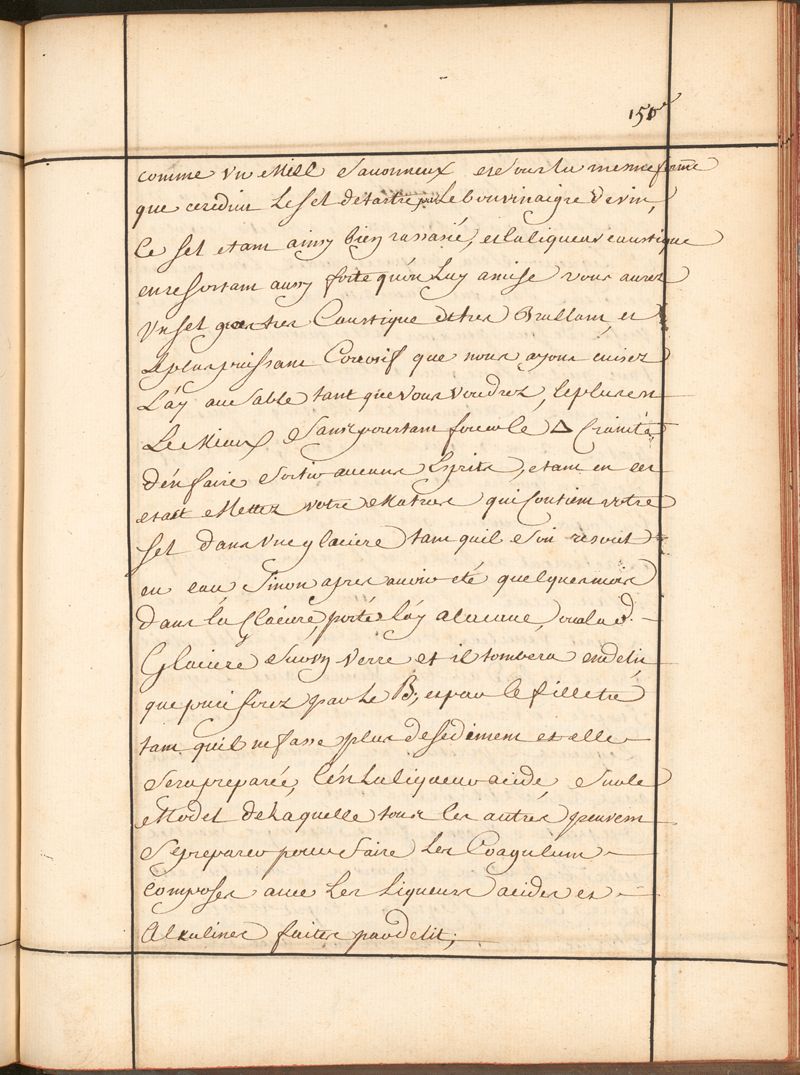 150
comme un Miel Savonneux et Sous la mesme forme
que ce reduit Le Sel de tartre par Le bon vinaigre de vin,
Ce Sel etant ainsy bien rassasié, et la liqueur caustique
en ressortant aussy forte qu'on Luy a mise vous aurez
Un Sel tres Caustique et tres Brullant, et
Le plus puissant Corosif que nous ayons cuisez
L'ay au Sable tant que vous voudrez, le plus en
Le Mieux Sans pourtant forcer le △ Crainte
d'en faire Sortir aucuns Esprits, etant en cet
etatt Mettez votre Matras qui Contient votre
Sel dans Une glaciere tant quil Soit resout
en eau Sinon apres avoir eté quelques mois
dans la Glaciere, portés l'ay a la cave, ou a la d.
Glaciere Sur un Verre et il tombera en deli
que purifirez par Le B; et par le filletré
tant qu'il ne fasse plus de Sediment et elle
Sera preparée, C'en La liqueur acide, Sur le
Model de Laquelle tous les autres peuvent
Se preparer pour faire Les Coagulum
Composes avec Les Liqueurs acides et
Alkalines faites par delit;